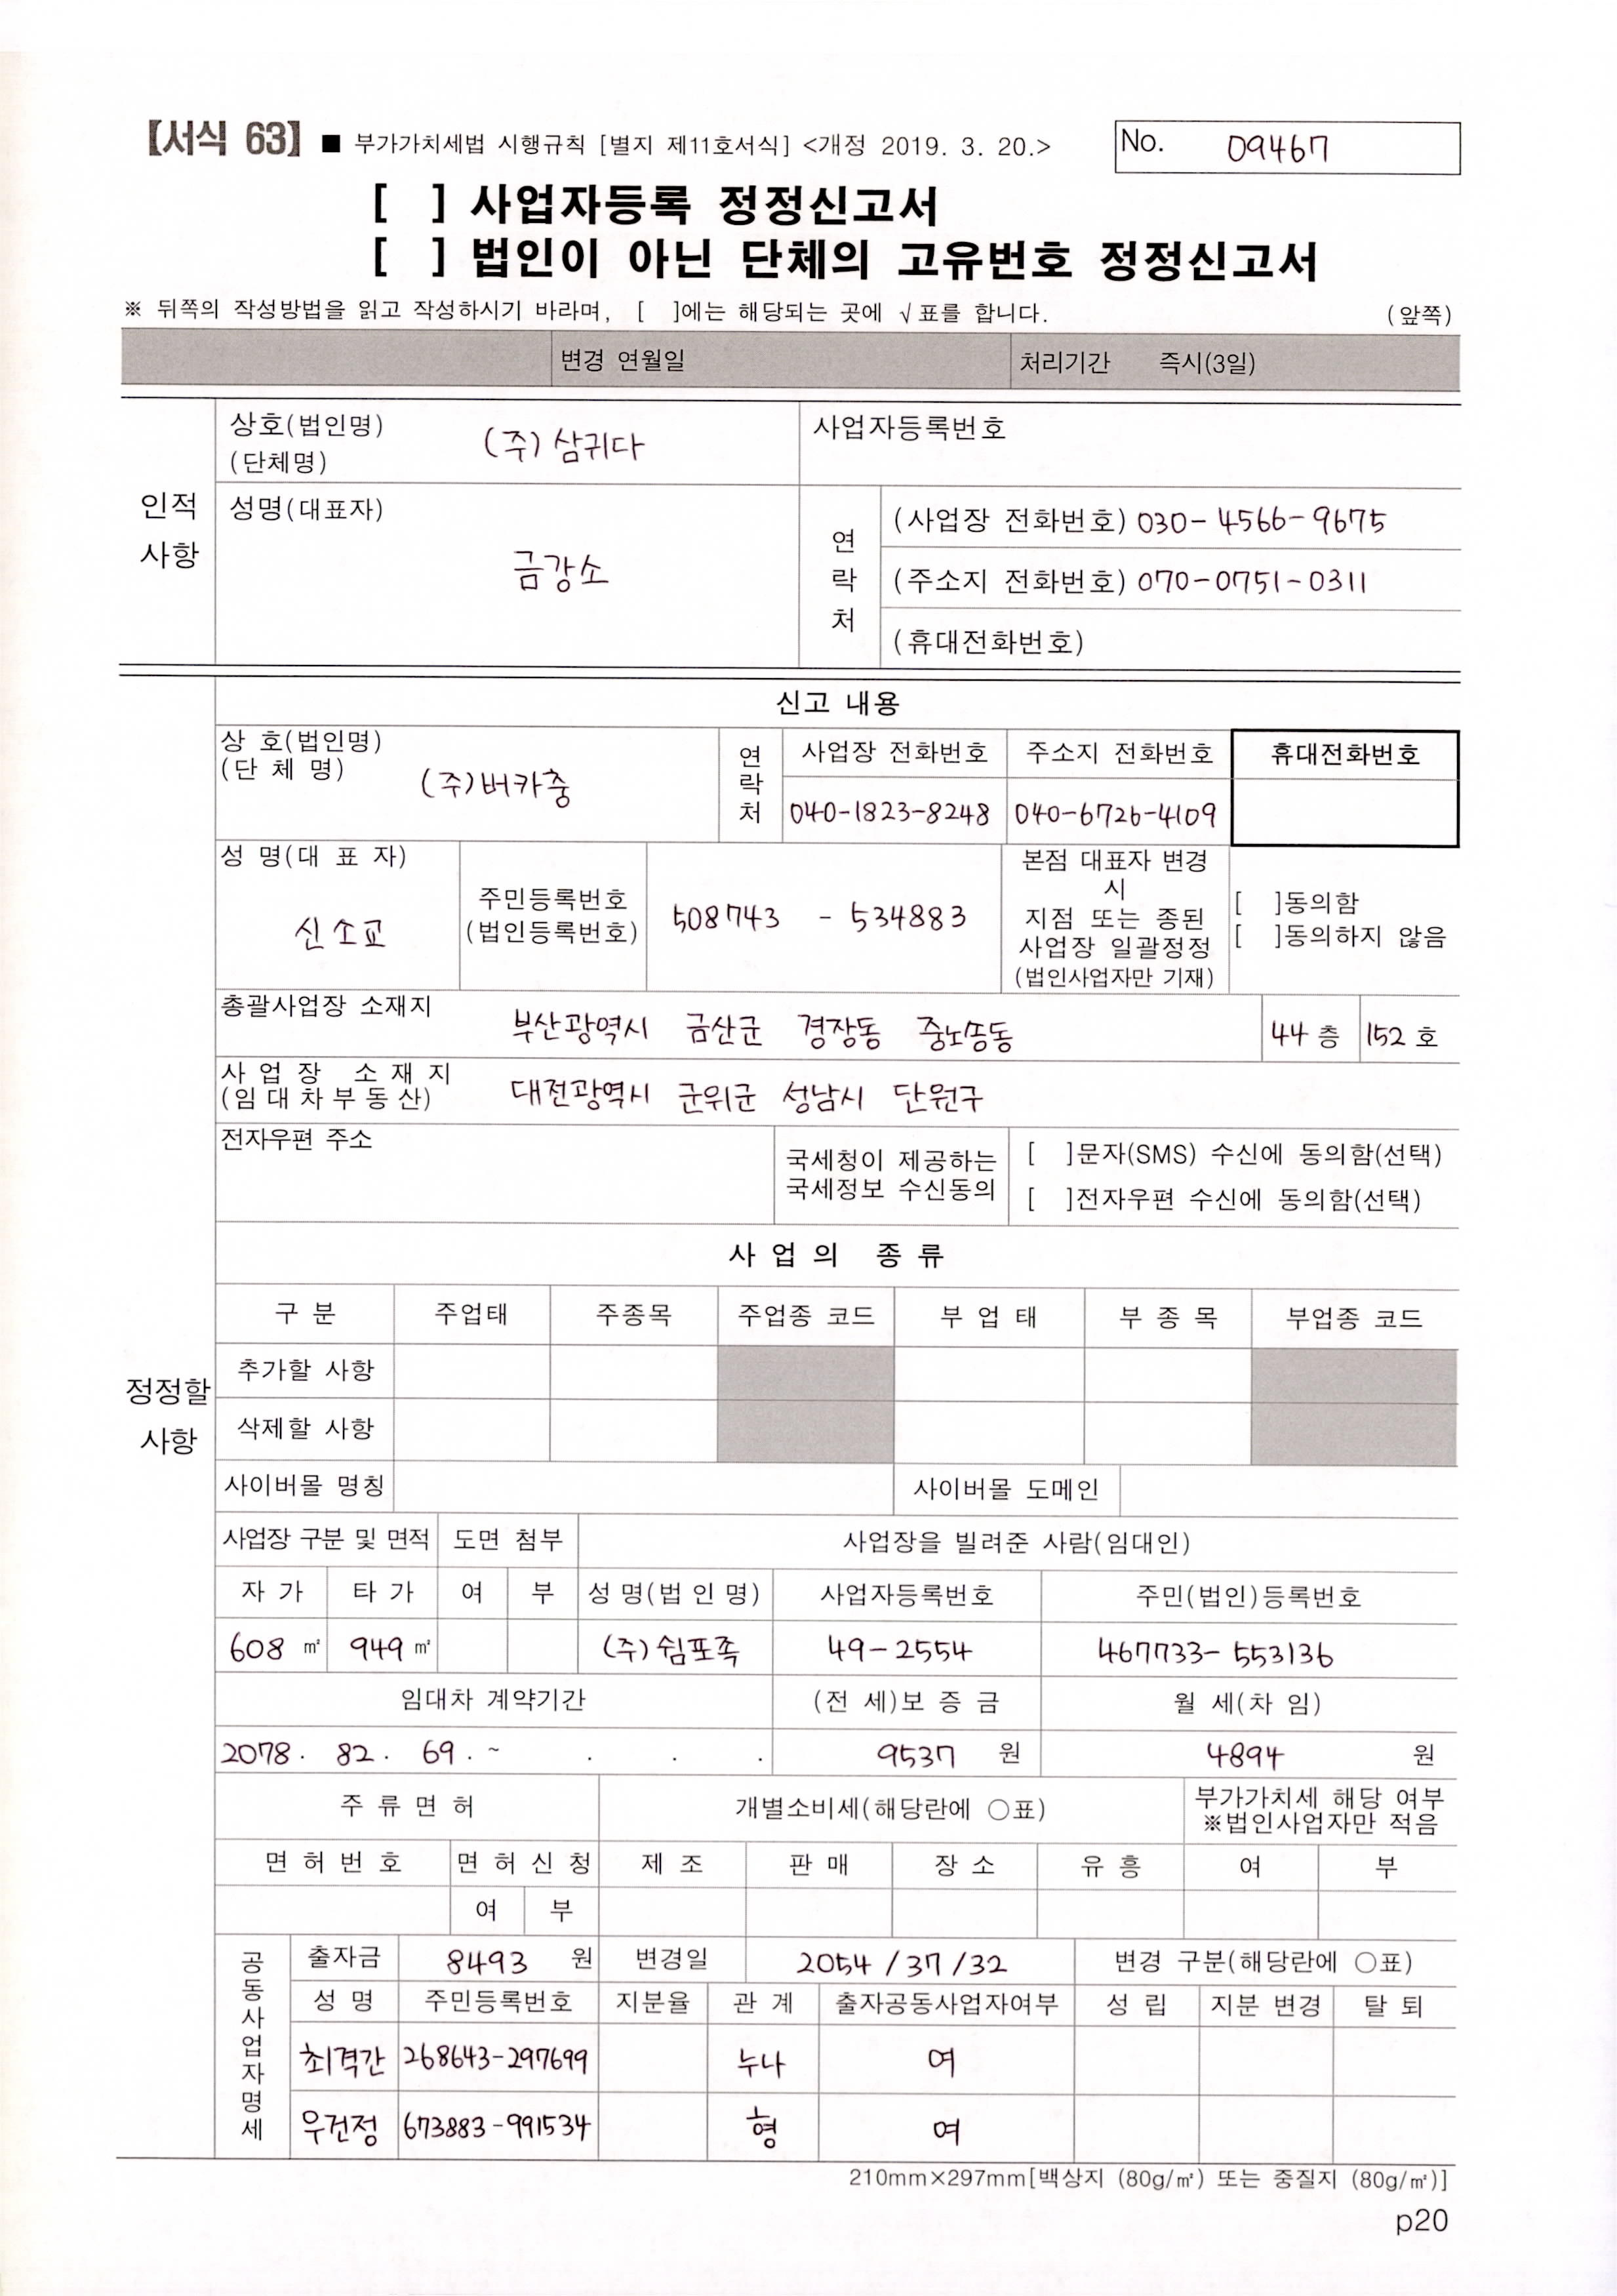 【서식 63】 ■ 부가가치세법 시행규칙 [별지 제11호서식] <개정 2019. 3. 20.>
No. 09467
[ ] 사업자등록 정정신고서
[ ] 법인이 아닌 단체의 고유번호 정정신고서
※ 뒤쪽의 작성방법을 읽고 작성하시기 바라며, [ ]에는 해당되는 곳에 √표를 합니다. (앞쪽)
변경 연월일 처리기간 즉시(3일)
인적 사항
상호(법인명) (단체명) (주)삼귀다 사업자등록번호
성명(대표자) 금강소
연락처
(사업장 전화번호) 030-4566-9675
(주소지 전화번호) 070-0751-0311
(휴대전화번호)
정정할 사항
신고 내용
상 호(법인명) (단 체 명) (주)버카충
연락처 사업장 전화번호 주소지 전화번호 휴대전화번호
040-1823-8248 040-6726-4109
성 명(대 표 자) 신소교
주민등록번호 (법인등록번호) 508743 - 534883
본점 대표자 변경
시
지점 또는 종된
사업장 일괄정정
(법인사업자만 기재)
[ ]동의함
[ ]동의하지 않음
총괄사업장 소재지 부산광역시 금산군 경장동 중노송동 44 층 152 호
사 업 장 소 재 지
(임 대 차 부 동 산) 대전광역시 군위군 성남시 단원구
전자우편 주소
국세청이 제공하는
국세정보 수신동의
[ ]문자(SMS) 수신에 동의함(선택)
[ ]전자우편 수신에 동의함(선택)
사 업 의 종 류
구 분 주업태 주종목 주업종 코드 부 업 태 부 종 목 부업종 코드
추가할 사항
삭제할 사항
사이버몰 명칭 사이버몰 도메인
사업장 구분 및 면적 도면 첨부 사업장을 빌려준 사람(임대인)
자 가 타 가 여 부 성 명(법 인 명) 사업자등록번호 주민(법인)등록번호
608 ㎡ 949 ㎡ (주)쉼포족 49-2554 467733-553136
임대차 계약기간 (전 세)보 증 금 월 세(차 임)
2078. 82. 69. ~ . . . 9537 원 4894 원
주 류 면 허 개별소비세(해당란에 ○표) 부가가치세 해당 여부
※법인사업자만 적음
면 허 번 호 면 허 신 청 제 조 판 매 장 소 유 흥 여 부
여 부
공동사업자명세
출자금 8493 원 변경일 2054/37/32 변경 구분(해당란에 ○표)
성 명 주민등록번호 지분율 관 계 출자공동사업자여부 성 립 지분 변경 탈 퇴
최격간 268643-297699 누나 여
우건정 673883-991534 형 여
210mm×297mm[백상지 (80g/㎡) 또는 중질지 (80g/㎡)]
p20